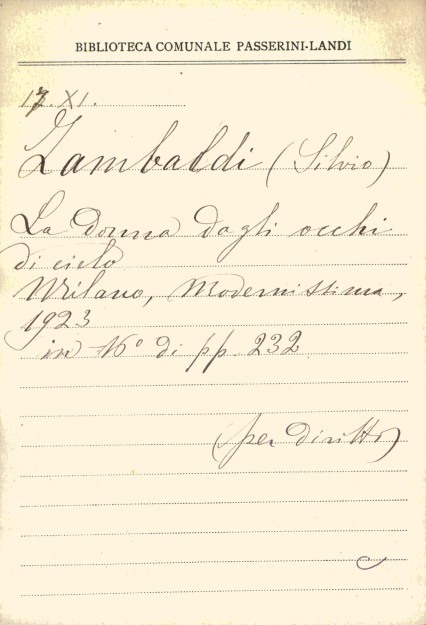 BIBLIOTECA COMUNALE PASSERINI-LANDI
17. XI.
Zambaldi (Silvio)
La donna dagli occhi
di cielo
Milano, Modernissima,
1923
in 16° di pp. 232
(per diritto)